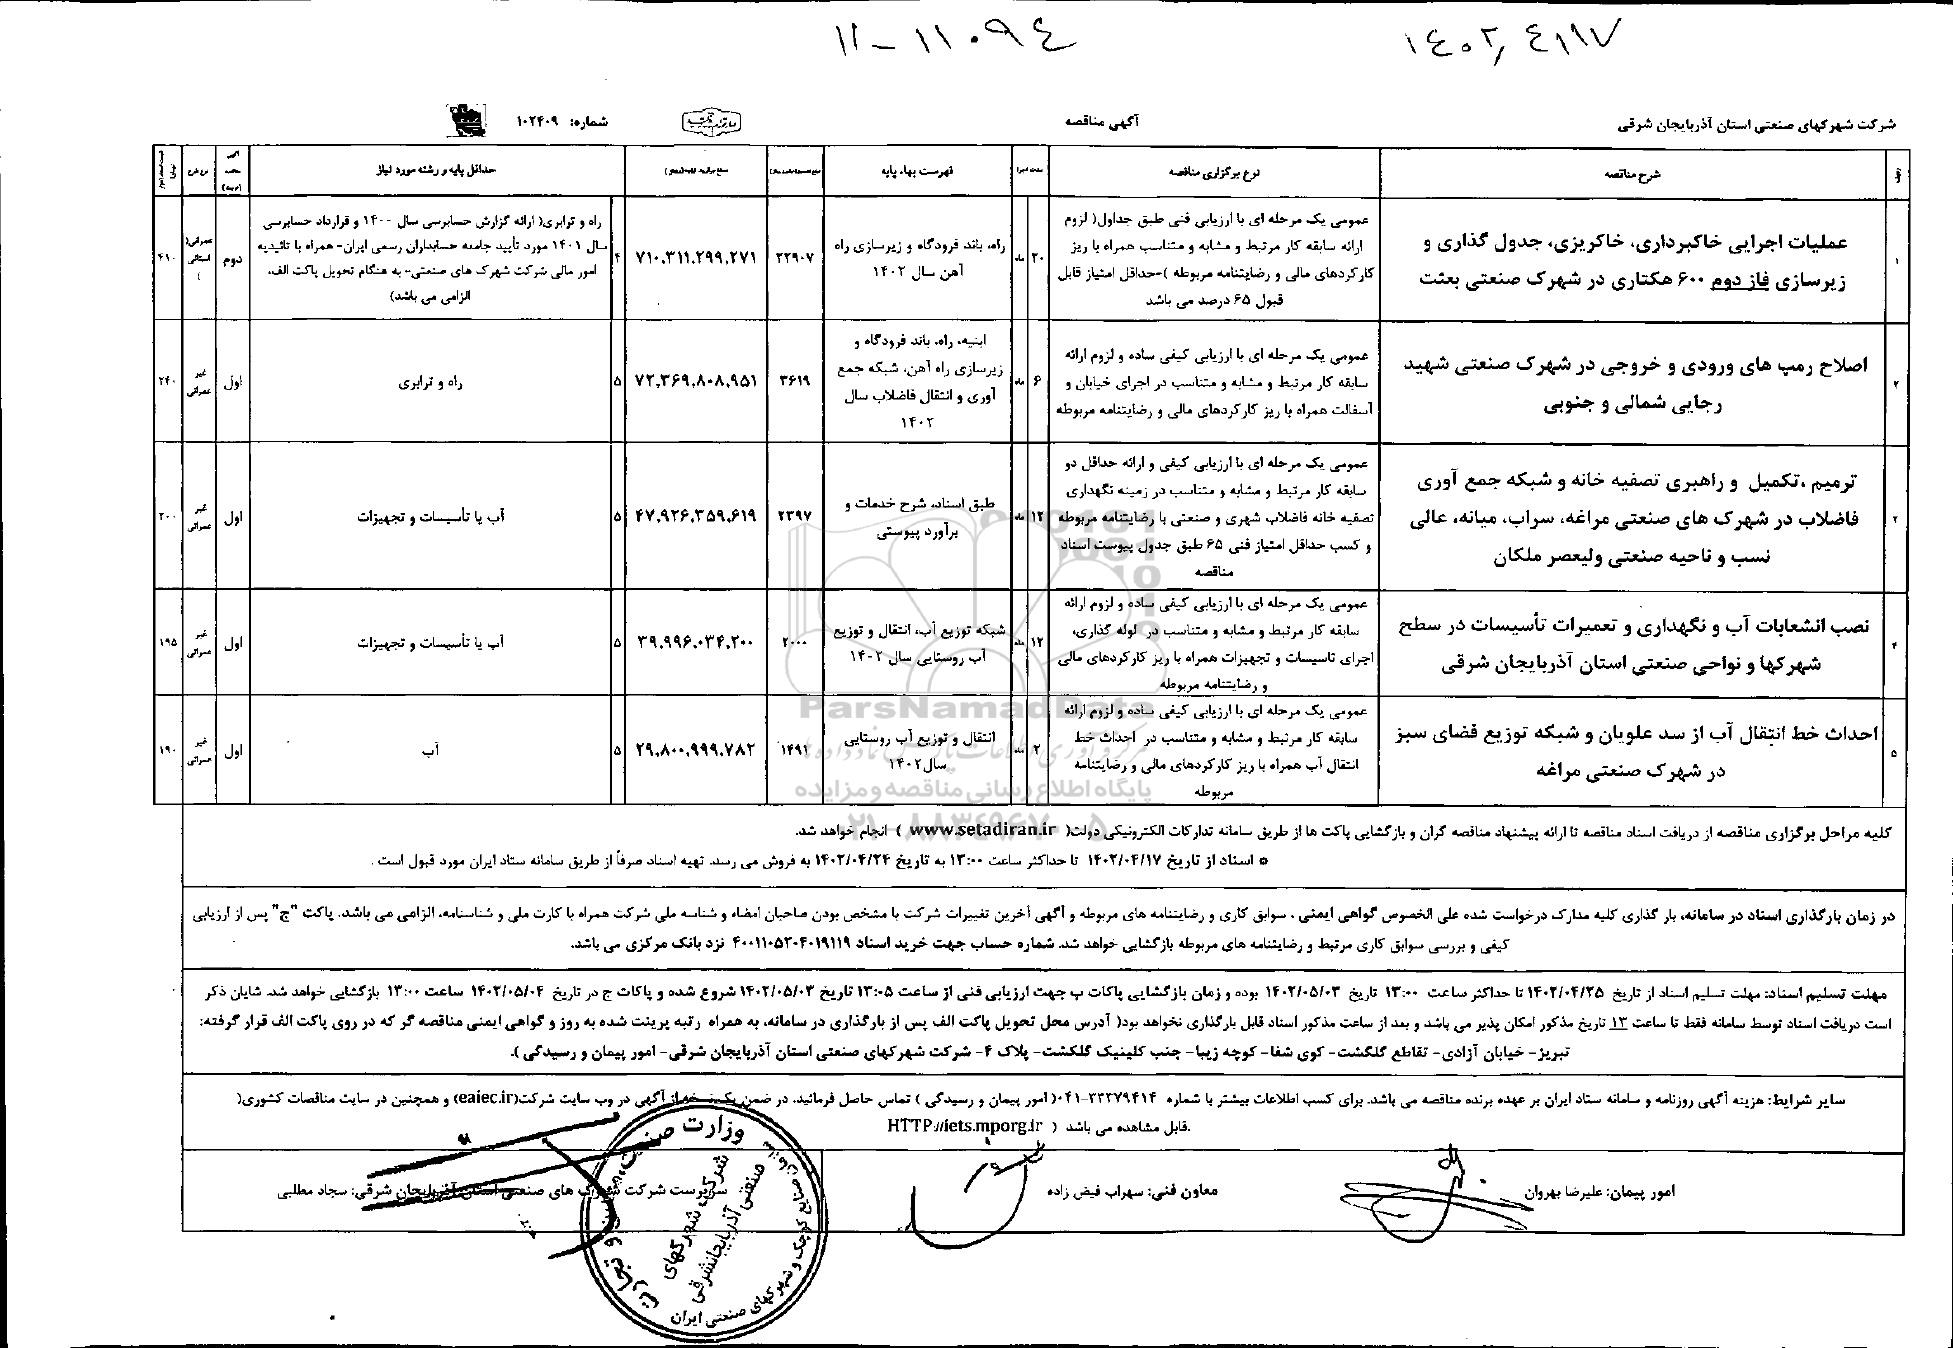 ۱۱-۱۱۰۹۴
۱۴۰۲,۴۱۱۷
شرکت شهرکهای صنعتی استان آذربایجان شرقی
آگهی مناقصه
شماره: ۱۰۲۴۰۹
شرح مناقصه
نوع برگزاری مناقصه
فهرست بهاء پایه
حداقل پایه و رشته مورد نیاز
۱
عملیات اجرایی خاکبرداری، خاکریزی، جدول گذاری و
زیرسازی فاز دوم ۶۰۰ هکتاری در شهرک صنعتی بعثت
عمومی یک مرحله ای با ارزیابی فنی طبق جداول( لزوم
ارائه سابقه کار مرتبط و مشابه و متناسب همراه با ریز
کارکردهای مالی و رضایتنامه مربوطه )-حداقل امتیاز قابل
قبول ۶۵ درصد می باشد
۲۰ ماه
راه، باند فرودگاه و زیرسازی راه
آهن سال ۱۴۰۲
۲۲۹۰۷
۷۱۰,۳۱۱,۲۹۹,۲۷۱
۴
راه و ترابری( ارائه گزارش حسابرسی سال ۱۴۰۰ و قرارداد حسابرسی
سال ۱۴۰۱ مورد تأیید جامعه حسابداران رسمی ایران- همراه با تائیدیه
امور مالی شرکت شهرک های صنعتی- به هنگام تحویل پاکت الف،
الزامی می باشد)
دوم
عمرانی(
استانی
)
۴۱۰
۲
اصلاح رمپ های ورودی و خروجی در شهرک صنعتی شهید
رجایی شمالی و جنوبی
عمومی یک مرحله ای با ارزیابی کیفی ساده و لزوم ارائه
سابقه کار مرتبط و مشابه و متناسب در اجرای خیابان و
آسفالت همراه با ریز کارکردهای مالی و رضایتنامه مربوطه
۶ ماه
ابنیه، راه، باند فرودگاه و
زیرسازی راه آهن، شبکه جمع
آوری و انتقال فاضلاب سال
۱۴۰۲
۳۶۱۹
۷۲,۳۶۹,۸۰۸,۹۵۱
۵
راه و ترابری
اول
غیر
عمرانی
۲۴۰
ترمیم ،تکمیل و راهبری تصفیه خانه و شبکه جمع آوری
فاضلاب در شهرک های صنعتی مراغه، سراب، میانه، عالی
نسب و ناحیه صنعتی ولیعصر ملکان
عمومی یک مرحله ای با ارزیابی کیفی و ارائه حداقل دو
سابقه کار مرتبط و مشابه و متناسب در زمینه نگهداری
تصفیه خانه فاضلاب شهری و صنعتی با رضایتنامه مربوطه
و کسب حداقل امتیاز فنی ۶۵ طبق جدول پیوست اسناد
مناقصه
۱۲ ماه
طبق اسناد، شرح خدمات و
برآورد پیوستی
۲۳۹۷
۴۷,۹۲۶,۳۵۹,۶۱۹
۵
آب یا تأسیسات و تجهیزات
اول
غیر
عمرانی
۲۰۰
۴
نصب انشعابات آب و نگهداری و تعمیرات تأسیسات در سطح
شهرکها و نواحی صنعتی استان آذربایجان شرقی
عمومی یک مرحله ای با ارزیابی کیفی ساده و لزوم ارائه
سابقه کار مرتبط و مشابه و متناسب در لوله گذاری،
اجرای تاسیسات و تجهیزات همراه با ریز کارکردهای مالی
و رضایتنامه مربوطه
۱۲ ماه
شبکه توزیع آب، انتقال و توزیع
آب روستایی سال ۱۴۰۲
۲۰۰۰
۳۹,۹۹۶,۰۳۴,۲۰۰
۵
آب یا تأسیسات و تجهیزات
اول
غیر
عمرانی
۱۹۵
۵
احداث خط انتقال آب از سد علویان و شبکه توزیع فضای سبز
در شهرک صنعتی مراغه
عمومی یک مرحله ای با ارزیابی کیفی ساده و لزوم ارائه
سابقه کار مرتبط و مشابه و متناسب در احداث خط
انتقال آب همراه با ریز کارکردهای مالی و رضایتنامه
مربوطه
۲ ماه
انتقال و توزیع آب روستایی
سال۱۴۰۲
۱۴۹۱
۲۹,۸۰۰,۹۹۹,۷۸۲
۵
آب
اول
غیر
عمرانی
۱۹۰
ParsNamadData
پایگاه اطلاع رسانی مناقصه و مزایده
کلیه مراحل برگزاری مناقصه از دریافت اسناد مناقصه تا ارائه پیشنهاد مناقصه گران و بازگشایی پاکت ها از طریق سامانه تدارکات الکترونیکی دولت( www.setadiran.ir ) انجام خواهد شد.
* اسناد از تاریخ ۱۴۰۲/۰۴/۱۷ تا حداکثر ساعت ۱۳:۰۰ به تاریخ ۱۴۰۲/۰۴/۲۴ به فروش می رسد. تهیه اسناد صرفاً از طریق سامانه ستاد ایران مورد قبول است .
در زمان بارگذاری اسناد در سامانه، بار گذاری کلیه مدارک درخواست شده علی الخصوص گواهی ایمنی ، سوابق کاری و رضایتنامه های مربوطه و آگهی آخرین تغییرات شرکت با مشخص بودن صاحبان امضاء و شناسه ملی شرکت همراه با کارت ملی و شناسنامه، الزامی می باشد. پاکت "ج" پس از ارزیابی
کیفی و بررسی سوابق کاری مرتبط و رضایتنامه های مربوطه بازگشایی خواهد شد. شماره حساب جهت خرید اسناد ۴۰۰۱۱۰۵۲۰۴۰۱۹۱۱۹ نزد بانک مرکزی می باشد.
مهلت تسلیم اسناد: مهلت تسلیم اسناد از تاریخ ۱۴۰۲/۰۴/۲۵ تا حداکثر ساعت ۱۳:۰۰ تاریخ ۱۴۰۲/۰۵/۰۳ بوده و زمان بازگشایی پاکات ب جهت ارزیابی فنی از ساعت ۱۳:۰۵ تاریخ ۱۴۰۲/۰۵/۰۳ شروع شده و پاکات ج در تاریخ ۱۴۰۲/۰۵/۰۴ ساعت ۱۳:۰۰ بازگشایی خواهد شد. شایان ذکر
است دریافت اسناد توسط سامانه فقط تا ساعت ۱۳ تاریخ مذکور امکان پذیر می باشد و بعد از ساعت مذکور اسناد قابل بارگذاری نخواهد بود( آدرس محل تحویل پاکت الف پس از بارگذاری در سامانه، به همراه رتبه پرینت شده به روز و گواهی ایمنی مناقصه گر که در روی پاکت الف قرار گرفته:
تبریز- خیابان آزادی- تقاطع گلگشت- کوی شفا- کوچه زیبا- جنب کلینیک گلگشت- پلاک ۴- شرکت شهرکهای صنعتی استان آذربایجان شرقی- امور پیمان و رسیدگی ).
سایر شرایط: هزینه آگهی روزنامه و سامانه ستاد ایران بر عهده برنده مناقصه می باشد. برای کسب اطلاعات بیشتر با شماره ۳۳۳۷۹۴۱۴-۰۴۱( امور پیمان و رسیدگی ) تماس حاصل فرمائید. در ضمن یک نسخه از آگهی در وب سایت شرکت(eaiec.ir) و همچنین در سایت مناقصات کشوری(
HTTP://iets.mporg.ir ) قابل مشاهده می باشد.
امور پیمان: علیرضا بهروان
معاون فنی: سهراب فیض زاده
سرپرست شرکت شهرک های صنعتی استان آذربایجان شرقی: سجاد مطلبی
وزارت صنعت، معدن و تجارت
سازمان صنایع کوچک و شهرکهای صنعتی ایران
شرکت شهرکهای
صنعتی آذربایجانشرقی